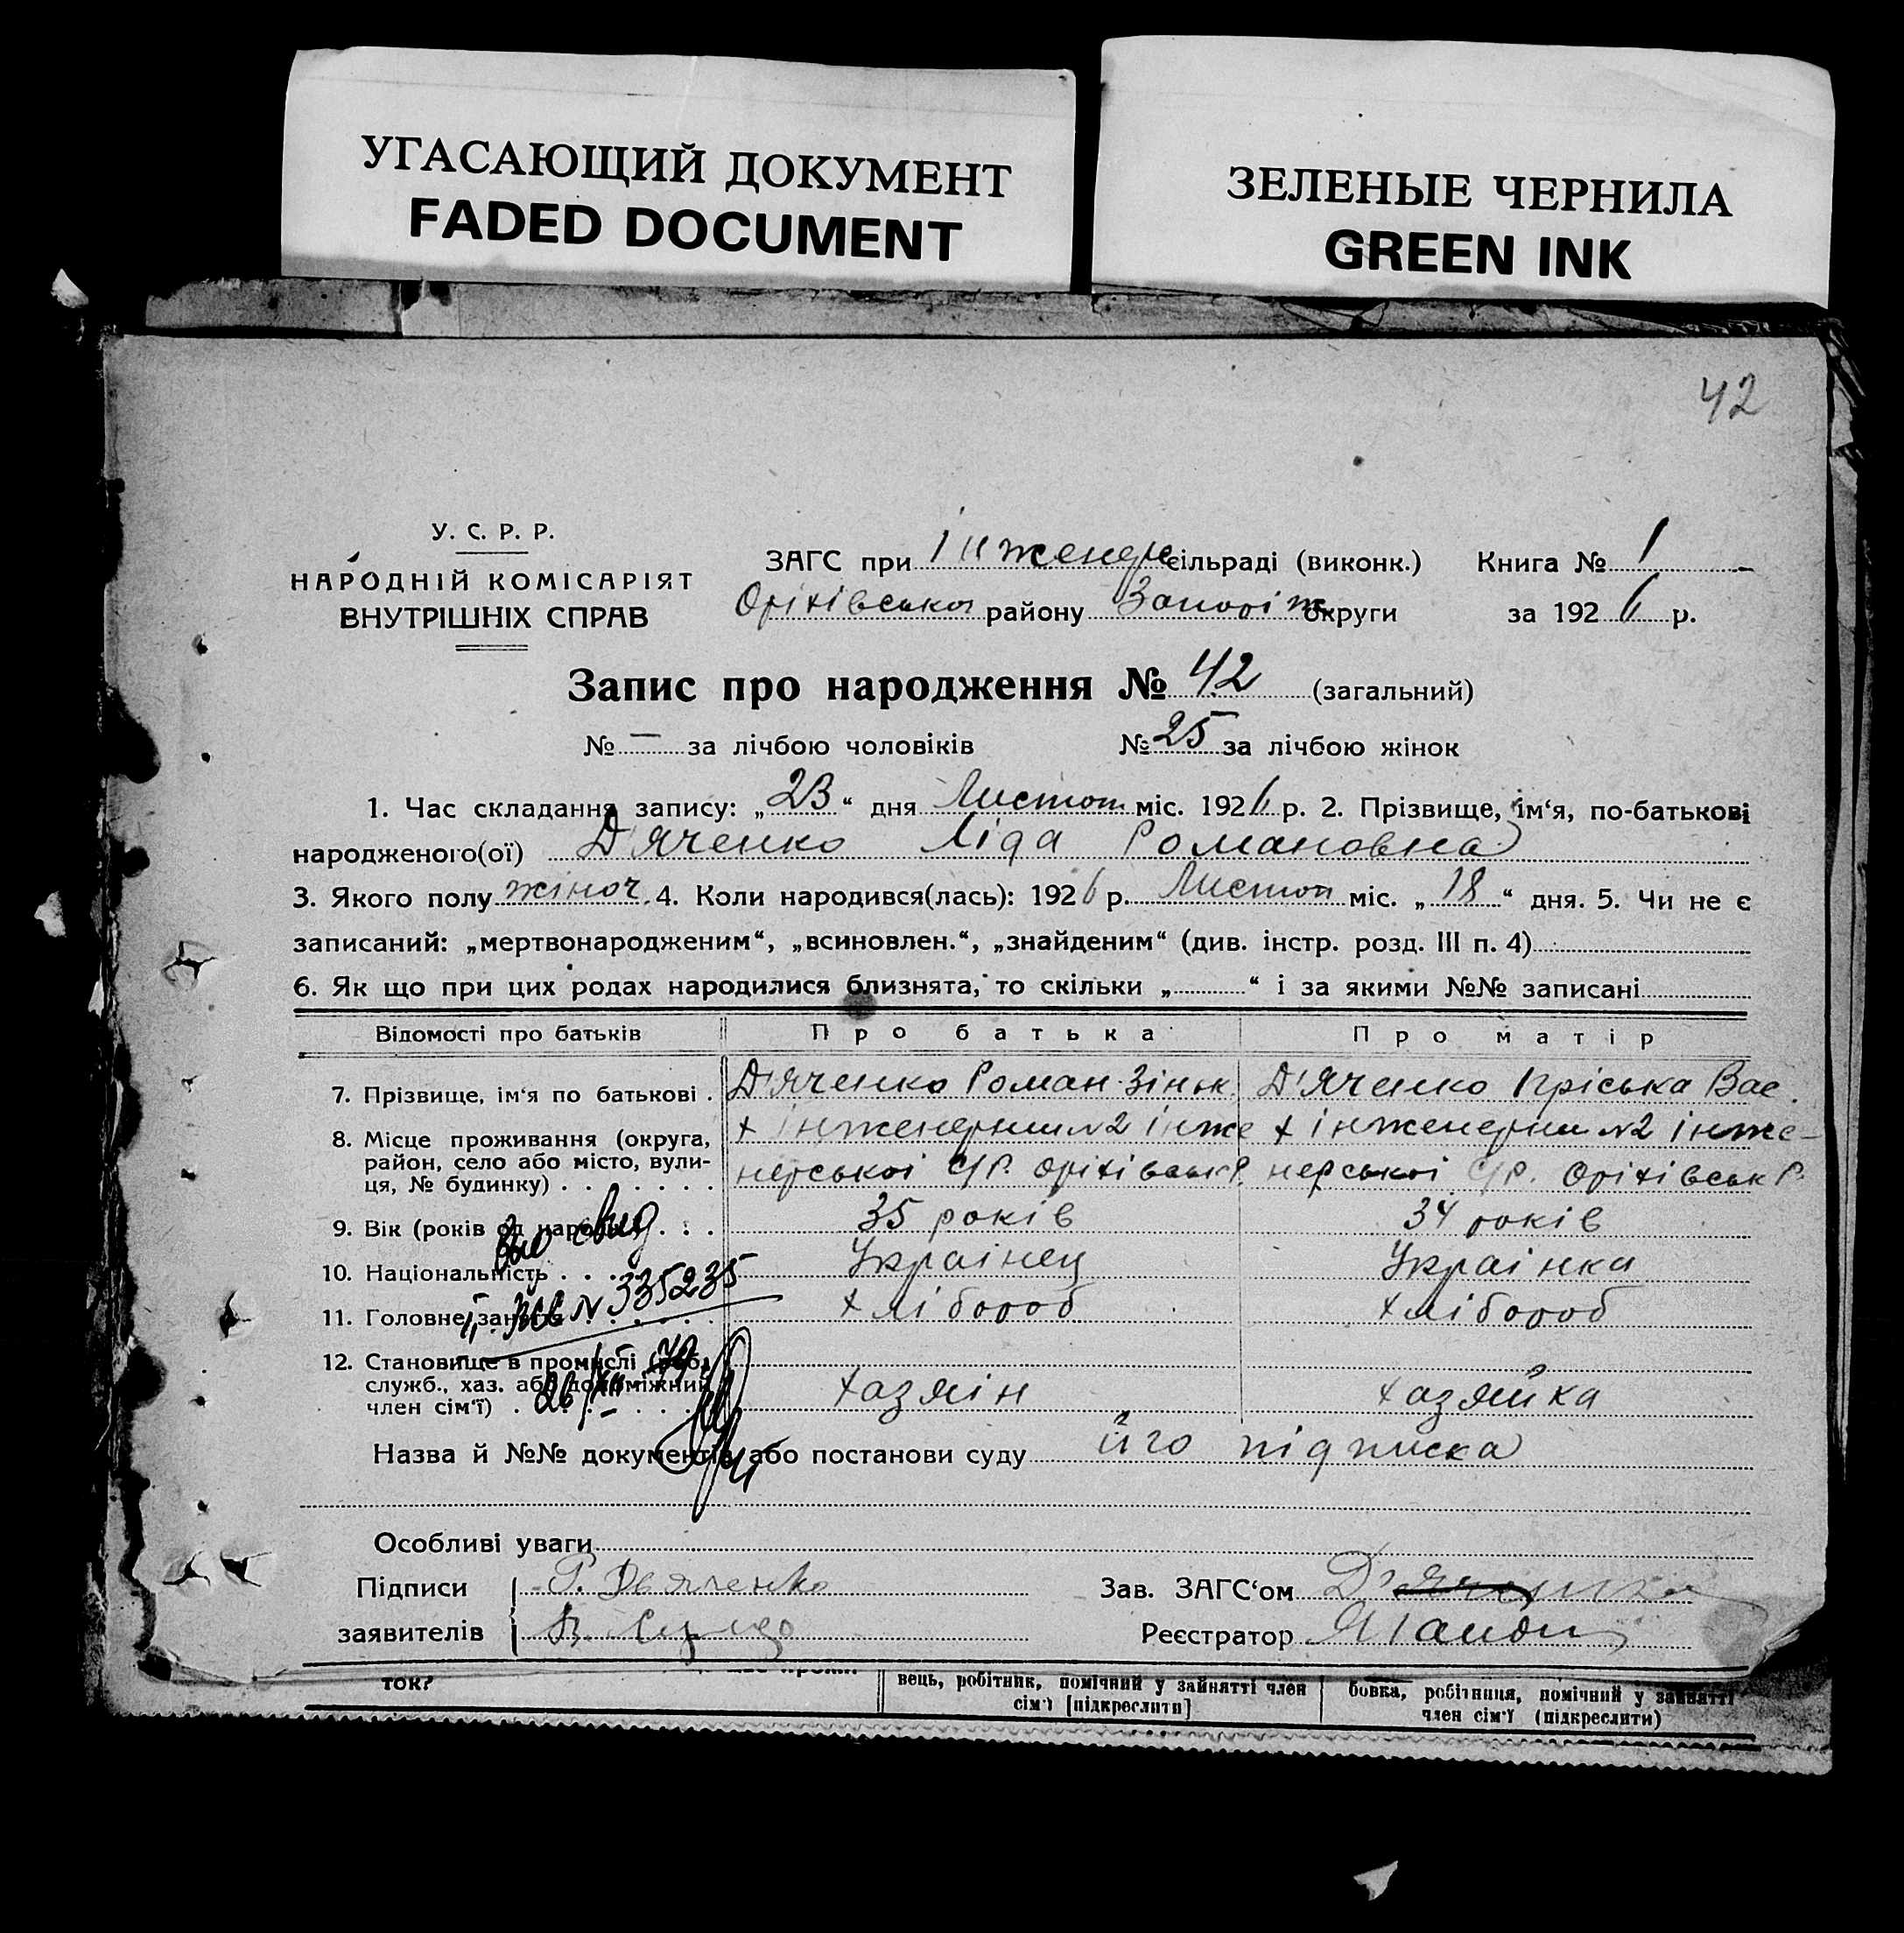 УГАСАЮЩИЙ ДОКУМЕНТ
FADED DOCUMENT
ЗЕЛЕНЫЕ ЧЕРНИЛА
GREEN INK
42
У. С. Р. Р.
НАРОДНІЙ КОМІСАРІЯТ
ВНУТРІШНІХ СПРАВ
ЗАГС при Інженерн сільраді (виконк.) Книга № 1
Оріхівськог району Запоріж округи за 1926 р.
Запис про народження № 42 (загальний)
№ — за лічбою чоловіків № 25 за лічбою жінок
1. Час складання запису: „23“ дня Листоп міс. 1926 р. 2. Прізвище, ім‘я, по-батькові
народженого(ої) Д'яченко Ліда Романовна
3. Якого полу жіноч. 4. Коли народився(лась): 1926 р. Листоп міс. „18“ дня. 5. Чи не є
записаний: „мертвонародженим“, „всиновлен.“, „знайденим“ (див. інстр. розд. III п. 4)
6. Як що при цих родах народилися близнята, то скільки „ “ і за якими №№ записані
Відомості про батьків Про батька Про матір
7. Прізвище, ім‘я по батькові . Д'яченко Роман Зіньк. Д'яченко Пріська Вас.
8. Місце проживання (округа, район, село або місто, вулиця, № будинку)
х інженерний №2 інже х інженерний №2 інже-
нерської С/Р. Оріхівськ Р. нерської С/Р. Оріхівськ Р.
9. Вік (років од народж. 35 років 34 років
10. Національність Українец Українка
11. Головне заняття хлібороб хлібороб
12. Становище в промислі (роб., служб., хаз. або допоміжний член сім‘ї) хазяін хазяйка
№ 335235
26/XII-79
Назва й №№ документів або постанови суду його підписка
Особливі уваги
Підписи заявителів Р. Дьяченко
Зав. ЗАГС‘ом
Реєстратор
ток?
вець, робітник, помічний у зайнятті член
сім‘ї [підкреслити]
бовка, робітниця, помічний у зайнятті
член сім‘ї (підкреслити)